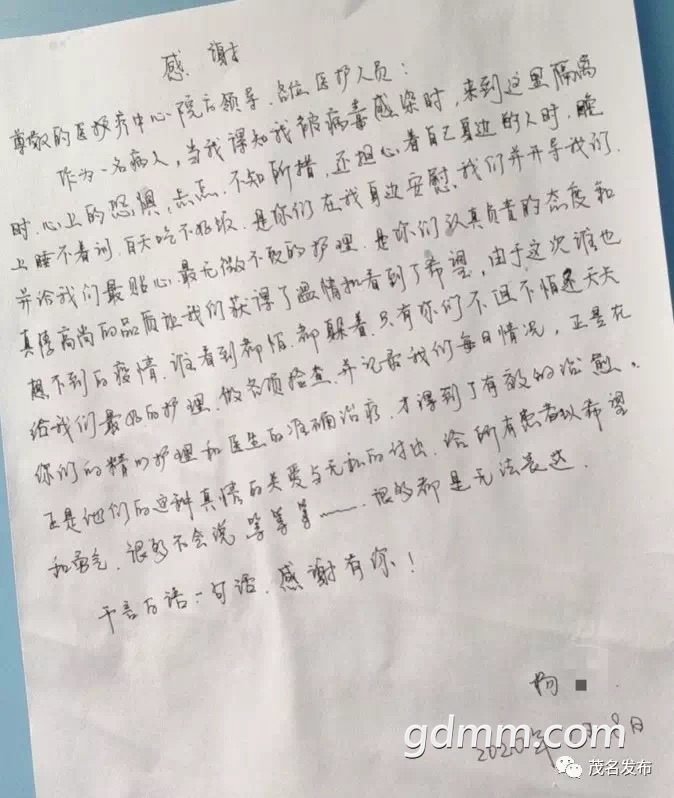 感谢
尊敬的医护疗中心院方领导、各位医护人员：
作为一名病人，当我得知我被病毒感染时，来到这里隔离
时，心上的恐惧，焦点，不知所措，还担心着自己身边的人时，晚
上睡不着训，白天吃不好饭，是你们在我身边安慰我们并开导我们，
并给我们最贴心，最无微不致的护理，是你们认真负责的态度和
真情高尚的品质让我们获得了温情和看到了希望，由于这次谁也
想不到的疫情，谁看到都怕，都躲着，只有你们不但不怕还天天
给我们最好的护理，做各项检查，并记录我们每日情况，正是在
你们的精心护理和医生的准确治疗，才得到了有效的治愈。
正是他们的这种真情的关爱与无私的付出，给所有患者以希望
和勇气，很多不会说等等等——很多都是无法表达．
千言万语一句话，感谢有你！
杨
2020年 月9日
gdmm.com
茂名发布